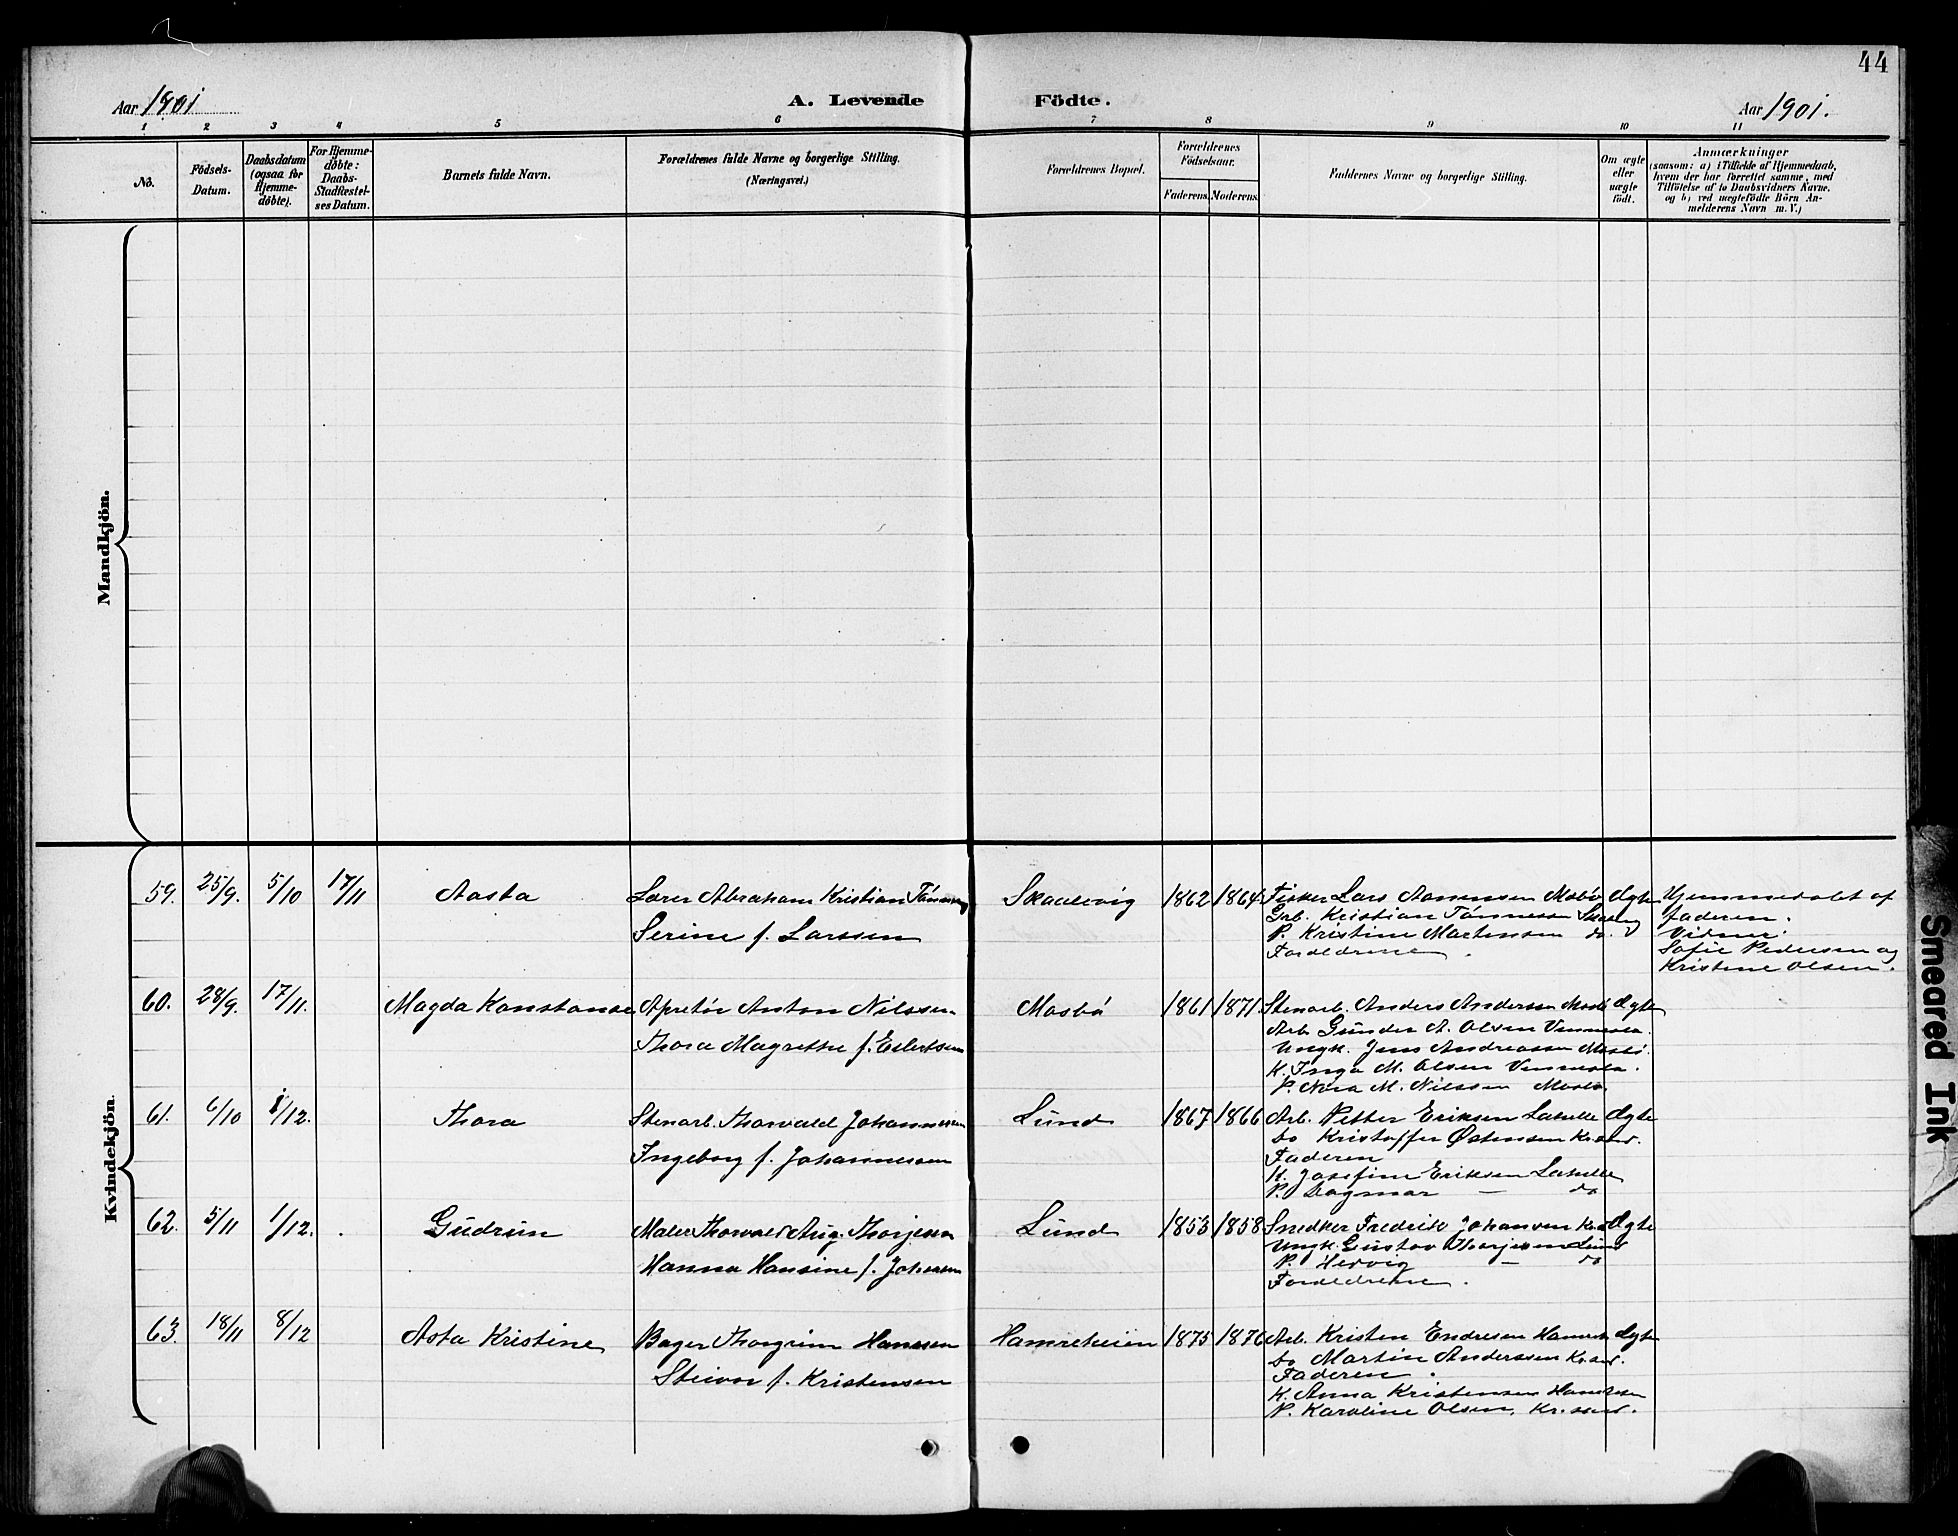 44
Aar 1901
A. Levende Födte.
Aar 1901.
1 2 3 4 5 6 7 8 9 10 11
No.
Födsels-Datum.
Daabsdatum (ogsaa for Hjemme-döbte).
For Hjemme-döbte: Daabs-Stadfæstel-ses Datum.
Barnets fulde Navn.
Forældrenes fulde Navne og borgerlige Stilling.
(Næringsvei.)
Forældrenes Bopæl.
Forældrenes Födselsaar.
Faderens. Moderens.
Faddernes Navne og borgerlige Stilling.
Om ægte eller uægte födt.
Anmærkninger
(saasom: a) i Tilfælde af Hjemmedaab,
hvem der har forrettet samme, med
Tilföielse af to Daabsvidners Navne,
og b) ved uægtefödte Börn An-
melderens Navn m. V.)
Mandkjön.
Kvindekjön.
59. 25/9. 5/10 17/11 Aasta
Lærer Abraham Kristian Tønnessen
Serine f. Larssen
Skaalevig 1862 1864
Fisker Lars Aanensen Mosbø
Grb. Kristian Tønnessen
P. Kristine Martensen do.
Forældrene.
Ægte
Hjemmedøbt af
faderen.
Vidner:
Sofie Pedersen og
Kristine Olsen.
60. 28/9. 17/11. Magda Konstanse
Apretør Anton Nilssen
Thora Magrethe f. Eilertsen
Mosbø 1861 1871.
Stenarb. Anders Anderssen Mosbø
Arb. Gunder A. Olsen Vennesla.
Ungk. Jens Andreassen Mosbø.
K. Inga M. Olsen Vennesla.
P. Nora M. Nilssen Mosbø.
Ægte
61. 6/10 1/12. Thora
Stenarb. Thorvald Johannessen
Ingeborg f. Johannessen
Lund 1867 1866
Arb. Petter Eriksen
do Kristoffer Østensen Kr.sand.
Faderen
K. Josefine Eriksen
P. Dagmar — do
Ægte
62. 5/11 1/12. Gudrun
Maler Thorvald Aug. Thorjessen
Hanna Hansine f. Johansen
Lund 1853 1858
Snedker Fredrik Johansen
Ungk. Gustav Thorjessen Lund
P. Hedvig — do
Forældrene.
Ægte
63. 18/11 8/12 Asta Kristine
Bager Thorgrim Hanssen
f. Kristensen
Hamreheien 1875 1876
Arb. Kristen Endresen
do Martin Anderssen Kr.sand.
Faderen.
K. Anna Kristensen
P. Karoline Olsen, Kr.sand.
Ægte
Smeared Ink